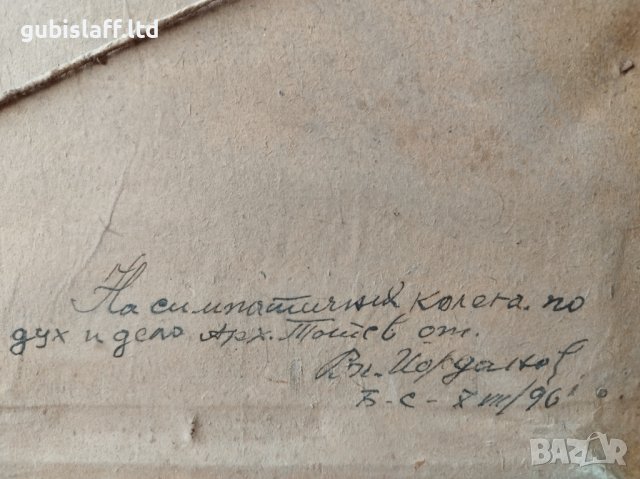 gubislaff.ltd
На симпатичния колега по
дух и дело Арх. Тотев от.
Вл. Йорданов
Б-с-XIII/96
BAZAR